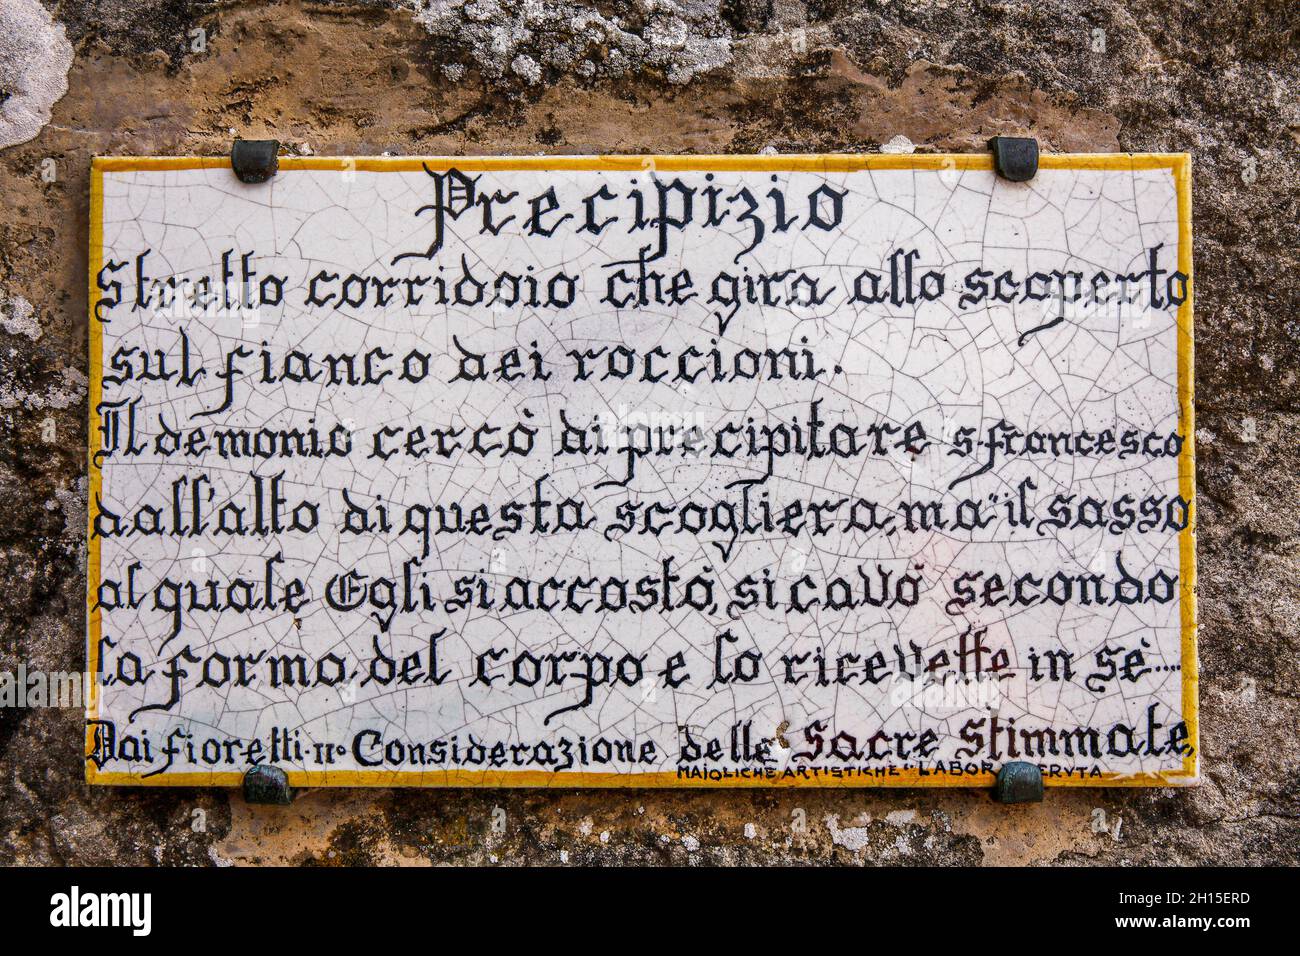 Precipizio
Stretto corridoio che gira allo scoperto
sul fianco dei roccioni.
Il demonio cercò di precipitare S. francesco
dall'alto di questa scogliera, ma il sasso
al quale Egli si accostò, si cavò secondo
la forma del corpo e lo ricevette in sè.....
Dai fioretti - IIª Considerazione delle Sacre Stimmate,
MAIOLICHE ARTISTICHE "LABOR
alamy
Image ID: 2H15ERD
www.alamy.com